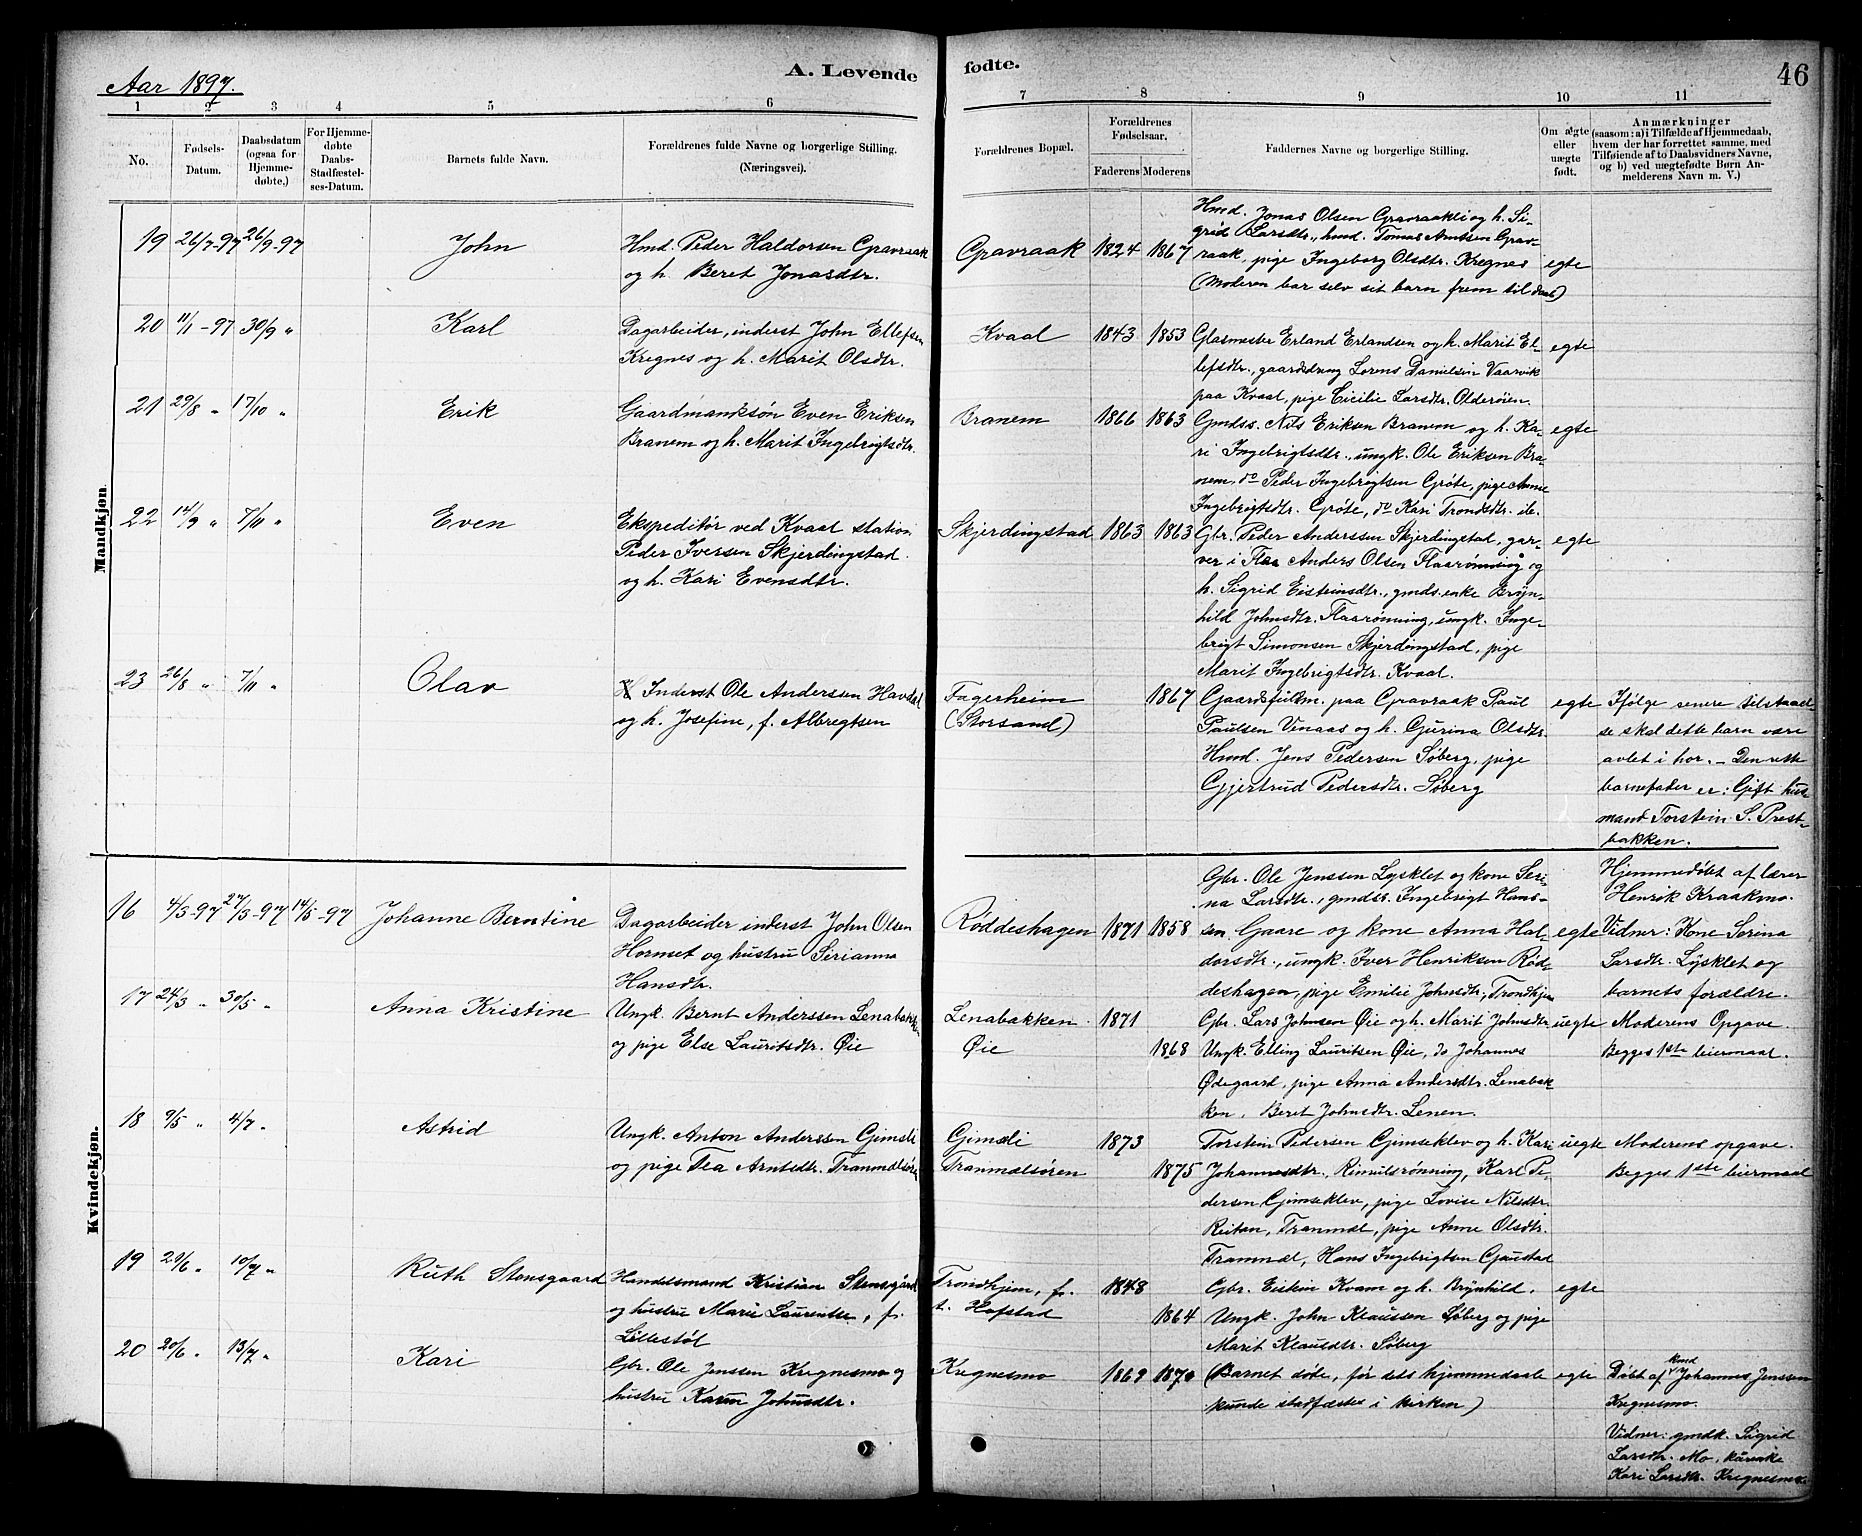 Aar 1897.
A. Levende
fødte.
46
1 2 3 4 5 6 7 8 9 10 11
No.
Fødsels-
Datum.
Daabsdatum
(ogsaa for
Hjemme-
døbte,)
For Hjemme-
døbte
Daabs-
Stadfæstel-
ses-Datum.
Barnets fulde Navn.
Forældrenes fulde Navne og borgerlige Stilling.
(Næringsvei).
Forældrenes Bopæl.
Forældrenes
Fødselsaar.
Faderens Moderens
Faddernes Navne og borgerlige Stilling.
Om ægte
eller
uægte
født.
Anmærkninger
(saasom: a) i Tilfælde af Hjemmedaab,
hvem der har forrettet samme, med
Tilføiende af to Daabsvidners Navne,
og b) ved uægtefødte Børn An-
melderens Navn m. V.)
Mandkjøn.
19 26/7-97 26/9-97 John
Hmd. Peder Haldorsen Gravraak
og h. Beret Jonasdtr.
Gravraak 1824 1867
Hmd. Jonas Olsen Gravraakli og h. Si-
grid Larsdtr., hmd. Tomas Arntsen Grav-
raak, pige Ingeborg Olsdtr. Kregnes
(Moderen bar selv sit barn frem til daab)
egte
20 11/1-97 30/9 " Karl
Dagarbeider, inderst John Ellefsen
Kregnes og h. Marit Olsdtr.
Kvaal 1843 1853
Glasmester Erland Erlandsen og h. Marit El-
lefsdtr., gaardsdreng Lorens Danielsen Vaarvik
paa Kvaal, pige Cicilie Larsdtr. Olderøien.
egte
21 29/8 " 17/10 " Erik
Gaardmandssøn Even Eriksen
Branem og h. Marit Ingebrigtsdtr.
Branem 1866 1863
Gmdss. Nils Eriksen Branem og h. Ka-
ri Ingebrigtsdtr., ungk. Ole Eriksen Bra-
nem, do Peder Ingebrigtsen Grøte, pige Anne
Ingebrigtsdtr. Grøte, do Kari Trondsdtr. ib.
egte
22 14/9 " 7/11 " Even
Ekspeditør ved Kvaal station
Peder Iversen Skjerdingstad
og h. Kari Evensdtr.
Skjerdingstad 1863 1863
Gbr. Peder Anderssen Skjerdingstad, gar-
ver i Flaa Anders Olsen Flaarønning og
h. Sigrid Eisteinsdtr., gmds. enke Brÿn-
hild Johnsdtr. Flaarønning, ungk. Inge-
brigt Simonsen Skjerdingstad, pige
Marit Ingebrigtsdtr. Kvaal.
egte
23 26/8 " 7/11 " Olav
Inderst Ole Anderssen Havstad
og h. Josefine, f. Albregtsen
Fagerheim
(Storsand)
1867
Gaardsfuldm. paa Gravraak Paul
Paulsen Vinaas og h. Gurina Olsdtr.
Hmd. Jens Pedersen Søberg, pige
Gjertrud Pedersdtr. Søberg
egte
Ifølge senere tilstaael-
se skal dette barn være
avlet i hor. – Den rette
barnefader er: Gift hus-
mand Torstein S. Prest-
bakken.
Kvindekjøn.
16 4/3-97 27/3-97 14/5-97 Johanne Berntine
Dagarbeider inderst John Olsen
Hornset og hustru Serianna
Hansdtr.
Røddeshagen 1871 1858
Gbr. Ole Jenssen Lysklet og kone Seri-
na Larsdtr., gmdss. Ingebrigt Hans-
sen Gaare og kone Anna Hal-
dorsdtr., ungk. Iver Henriksen Rød-
deshagen, pige Emilie Johnsdtr, Trondhjem
egte
Hjemmedøbt af lærer
Henrik Kraakmo.
Vidner: Kone Serina
Larsdtr. Lysklet og
barnets forældre.
17 24/3 " 30/5 " Anna Kristine
Ungk. Bernt Anderssen Lenabakken
og pige Else Lauritsdtr. Øie
Lenabakken 1871
Øie 1868
Gbr. Lars Johnsen Øie og h. Marit Johnsdtr
Ungk. Elling Lauritsen Øie, do Johannes
Ødegaard, pige Anna Andersdtr. Lenabak-
ken, Beret Johnsdtr. Lenen.
uegte
Moderens Opgave.
Begges 1ste leiermaal.
18 9/5 " 4/7 " Astrid
Ungk. Anton Anderssen Gimsli
og pige Tea Arntsdtr. Tranmælsøren
Gimsli 1873
Tranmælsøren 1875
Torstein Pedersen Gimseklev og h. Kari
Johannesdtr. Rimulsrønning, Karl Pe-
dersen Gimseklev, pige Lovise Nilsdtr.
Reitan, Tranmæl, pige Anne Olsdtr.
Tranmæl, Hans Ingebrigtsen Gaustad
uegte
Moderens opgave.
Begges 1ste leiermaal
19 29/6 " 10/7 " Ruth Stensgaard
Handelsmand Kristian Stensgård
og hustru Marie Laurentse, f.
Lillestøl
Trondhjem, f.
t. Hofstad
1848 1864
Gbr. Eistein Kvam og h. Brÿnhild.
Ungk. John Klaussen Søberg og pige
Marit Klausdtr. Søberg
egte
20 20/6 " 13/7 " Kari
Gbr. Ole Jenssen Kregnesmo og
hustru Karen Johnsdtr.
Kregnesmo 1869 1870
(Barnet døde, før dets hjemmedaab
kunde stadfæstes i kirken)
egte
Døbt af kmd Johannes Jenssen
Kregnesmo.
Vidner: gmdk. Sigrid
Larsdtr. Mo, kårenke
Kari Larsdtr. Kregnesmo.